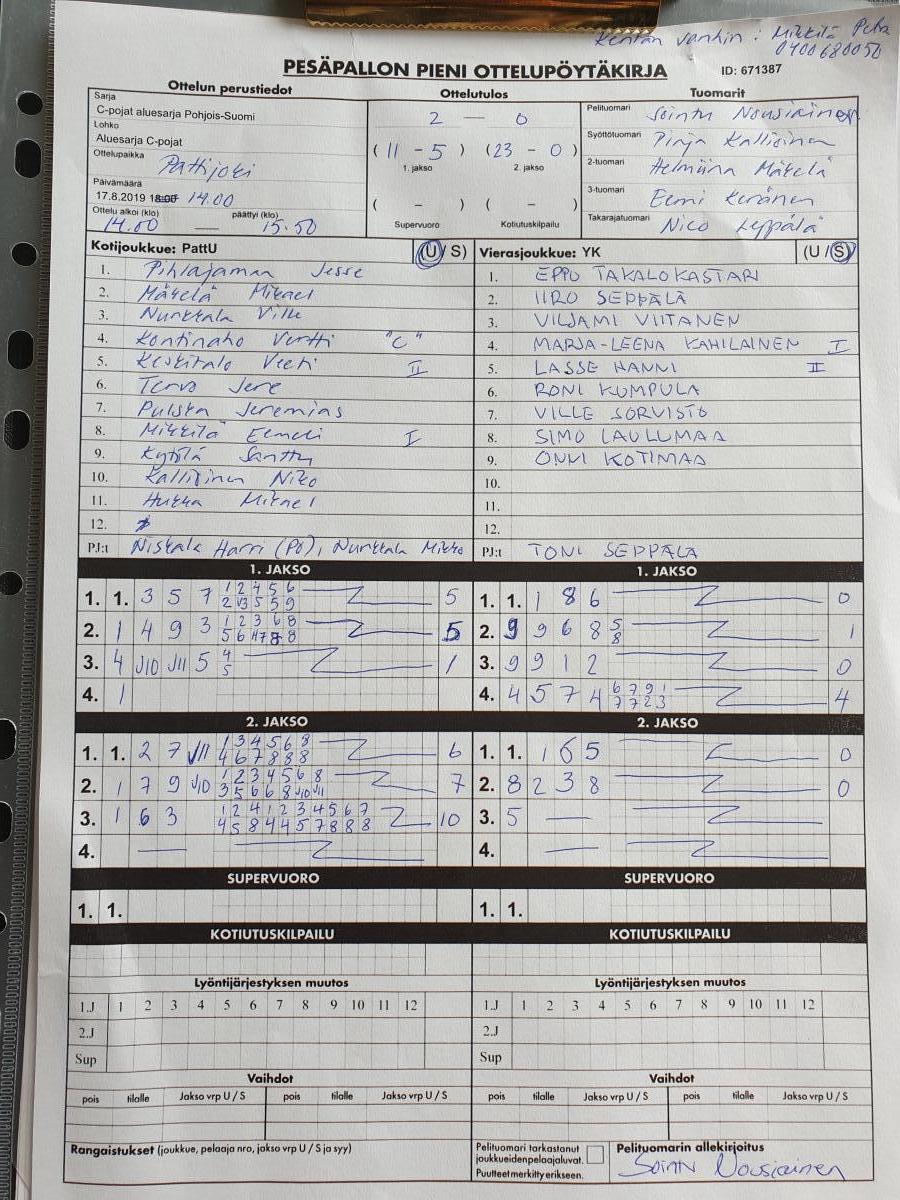 Kentän vanhin : Mikkilä Petra
0400680050
PESÄPALLON PIENI OTTELUPÖYTÄKIRJA ID: 671387
Ottelun perustiedot Ottelutulos Tuomarit
Sarja
C-pojat aluesarja Pohjois-Suomi
Lohko
Aluesarja C-pojat
Ottelupaikka Pattijoki
Päivämäärä
17.8.2019 18:00 14.00
Ottelu alkoi (klo) päättyi (klo)
14.00 — 15.50
2 — 0
( 11 - 5 ) ( 23 - 0 )
1. jakso 2. jakso
( - ) ( - )
Supervuoro Kotiutuskilpailu
Pelituomari Sointu Nousiainen
Syöttötuomari Pinja Kallioinen
2-tuomari Helmiina Mäkelä
3-tuomari Eemi Keränen
Takarajatuomari Nico Leppälä
Kotijoukkue: PattU (U / S) Vierasjoukkue: YK (U / S)
1. Pihlajamaa Jesse 1. EPPU TAKALOKASTARI
2. Mäkelä Mikael 2. IIRO SEPPÄLÄ
3. Nurkkala Ville 3. VILJAMI VIITANEN
4. Kontinaho Vertti "C" 4. MARJA-LEENA KAHILAINEN I
5. Keskitalo Veeti II 5. LASSE HANNI II
6. Tervo Jere 6. RONI KUMPULA
7. Pulska Jeremias 7. VILLE SORVISTO
8. Mikkilä Eemeli I 8. SIMO LAULUMAA
9. Kytölä Santtu 9. ONNI KOTIMAA
10. Kallioinen Niko 10.
11. Hukka Mikael 11.
12. 12.
PJ:t Niskala Harri (PO), Nurkkala Mikko PJ:t TONI SEPPÄLÄ
1. JAKSO 1. JAKSO
1. 1. 3 5 7 1 2 4 5 6 5 1. 1. 1 8 6 0
2 3 5 5 9
2. 1 4 9 3 1 2 3 6 8 5 2. 9 9 6 8 5 1
5 6 7 8 8 8
3. 4 J10 J11 5 4 1 3. 9 9 1 2 0
5
4. 1 4. 4 5 7 4 6 7 9 1 4
7 7 2 3
2. JAKSO 2. JAKSO
1. 1. 2 7 J11 1 3 4 5 6 8 6 1. 1. 1 6 5 0
4 6 7 8 8 8
2. 1 7 9 J10 1 2 3 4 5 6 8 7 2. 8 2 3 8 0
3 5 6 6 8 J10 J11
3. 1 6 3 1 2 4 1 2 3 4 5 6 7 10 3. 5 —
4 5 8 4 4 5 7 8 8 8
4. — 4. —
SUPERVUORO SUPERVUORO
1. 1. 1. 1.
KOTIUTUSKILPAILU KOTIUTUSKILPAILU
Lyöntijärjestyksen muutos Lyöntijärjestyksen muutos
1.J 1 2 3 4 5 6 7 8 9 10 11 12 1.J 1 2 3 4 5 6 7 8 9 10 11 12
2.J 2.J
Sup Sup
Vaihdot Vaihdot
pois tilalle Jakso vrp U / S pois tilalle Jakso vrp U / S pois tilalle Jakso vrp U / S pois tilalle Jakso vrp U / S
Rangaistukset (joukkue, pelaaja nro, jakso vrp U / S ja syy)
Pelituomari tarkastanut
joukkueidenpelaajaluvat.
Puutteet merkitty erikseen.
Pelituomarin allekirjoitus
Sointu Nousiainen